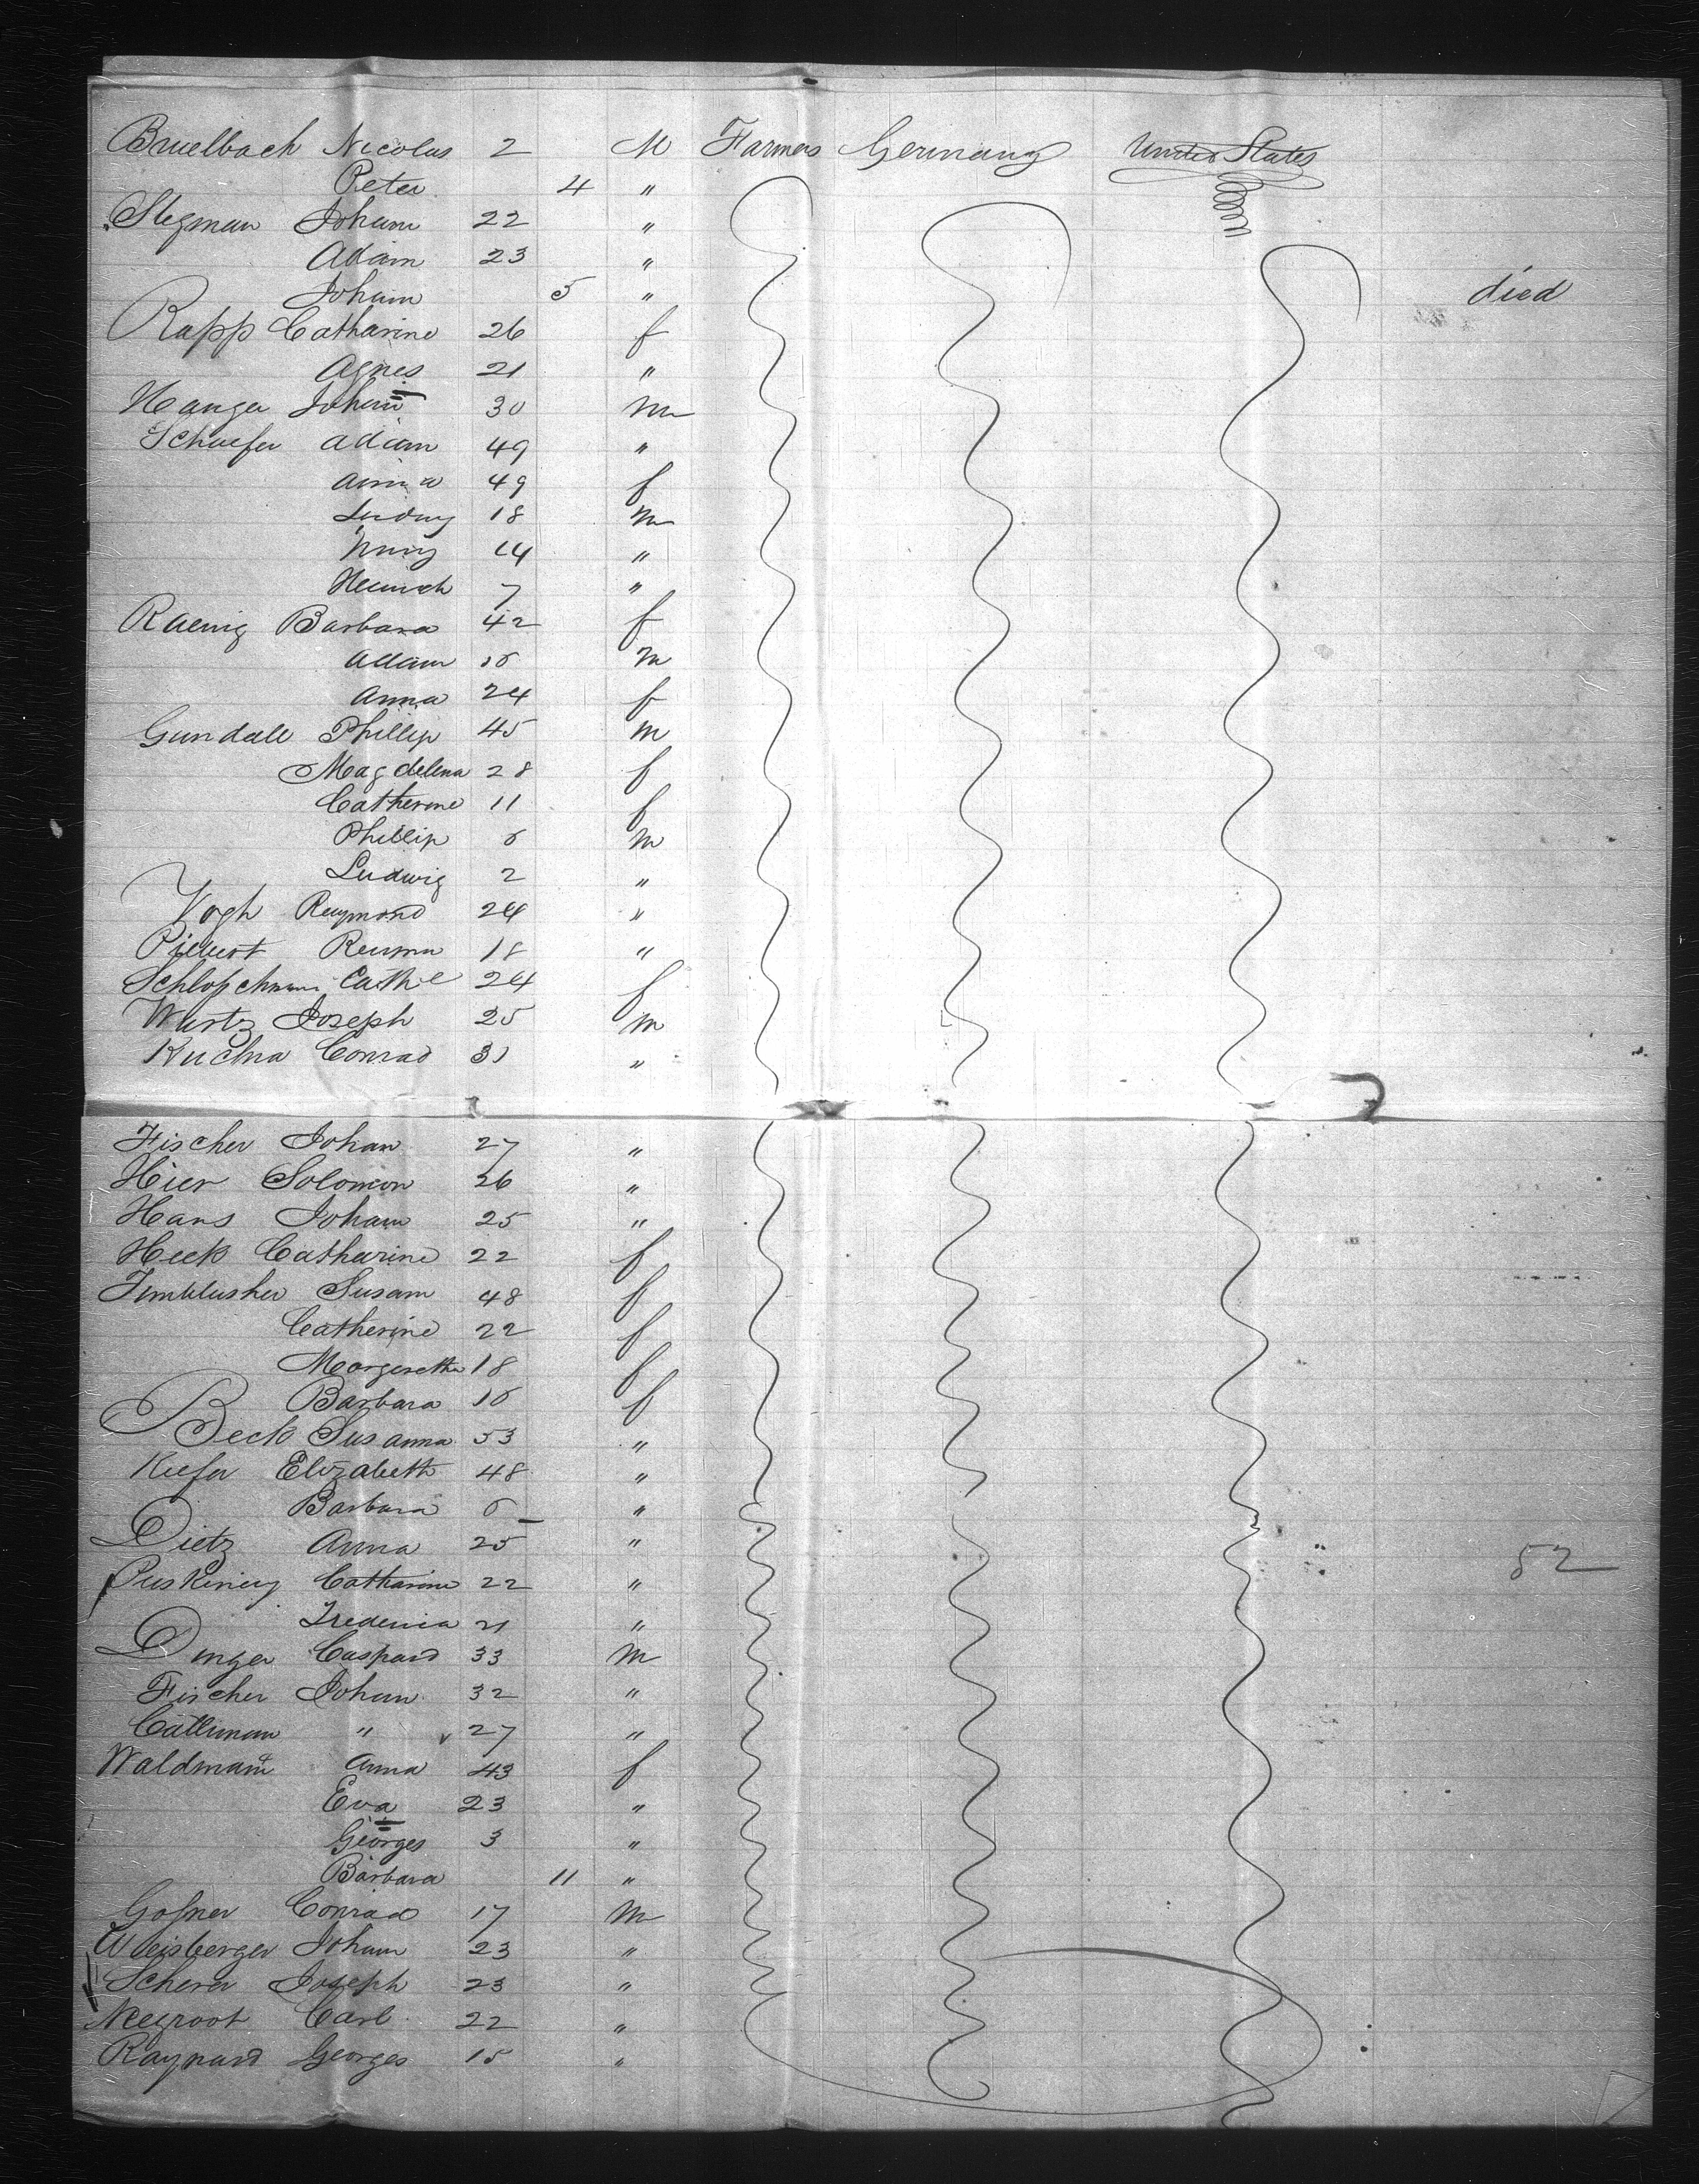 Bruelbach Nicolas 2 M Farmers Germany United States
Peter 4 "
Stegman Johann 22 "
Adam 23 "
Johann 5 " died
Rapp Catharine 26 f
Agnes 21 "
Hanger Johann 30 m
Schaefer Adam 49 "
Anna 49 f
Ludwig 18 m
14 "
Heinrich 7 "
Raenig Barbara 42 f
Adam 16 m
Anna 24 f
Gundall Phillip 45 m
Magdelena 28 f
Catherine 11 f
Phillip 6 m
Ludwig 2 "
Vogh Raymond 24 "
18 "
Cathe 24 f
Wurtz Joseph 25 m
Kuchna Conrad 31 "
Fischer Johan 27 "
Hier Solomon 26 "
Hans Johann 25 "
Heck Catharine 22 f
Susann 48 f
Catherine 22 f
Margeretha 18 f
Barbara 16 f
Beck Susanna 53 "
Kiefer Elizabeth 48 "
Barbara 6 "
Dietz Anna 25 "
Catharine 22 "
Frederica 21 "
Dinger Caspard 33 m
Fischer Johann 32 "
Catliman " 27 "
Waldmann Anna 43 f
Eva 23 "
Georges 3 "
Barbara 11 "
Goßner Conrad 17 m
Weisberger Johann 23 "
Scherer Joseph 23 "
Neegroot Carl 22 "
Raynard Georges 15 "
52